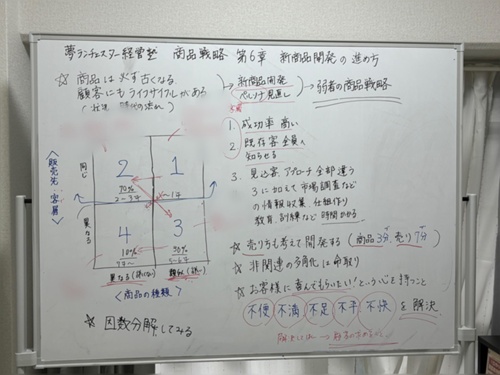 夢ランチェスター経営塾 商品戦略 第6章 新商品開発の進め方
☆ 商品は必ず古くなる
顧客にもライフサイクルがある
新商品開発
ペルソナ見直し
→ 弱者の商品戦略
1. 成功率 高い
2. 既存客全員へ
知らせる
3. 見込客、アプローチ全部違う
3に加えて市場調査など
の情報収集、仕組作り
教育、訓練など時間かかる
<販売先 客層>
同じ
異なる
2
1
70%
4
3
10%
<商品の種類>
☆ 売り方も考えて開発する (商品3分、売り7分)
☆ 非関連の多角化は命取り
☆ お客様に喜んでもらいたい!という心を持つこと
不便 不満 不足 不平 不快 を解決
☆ 因数分解してみる